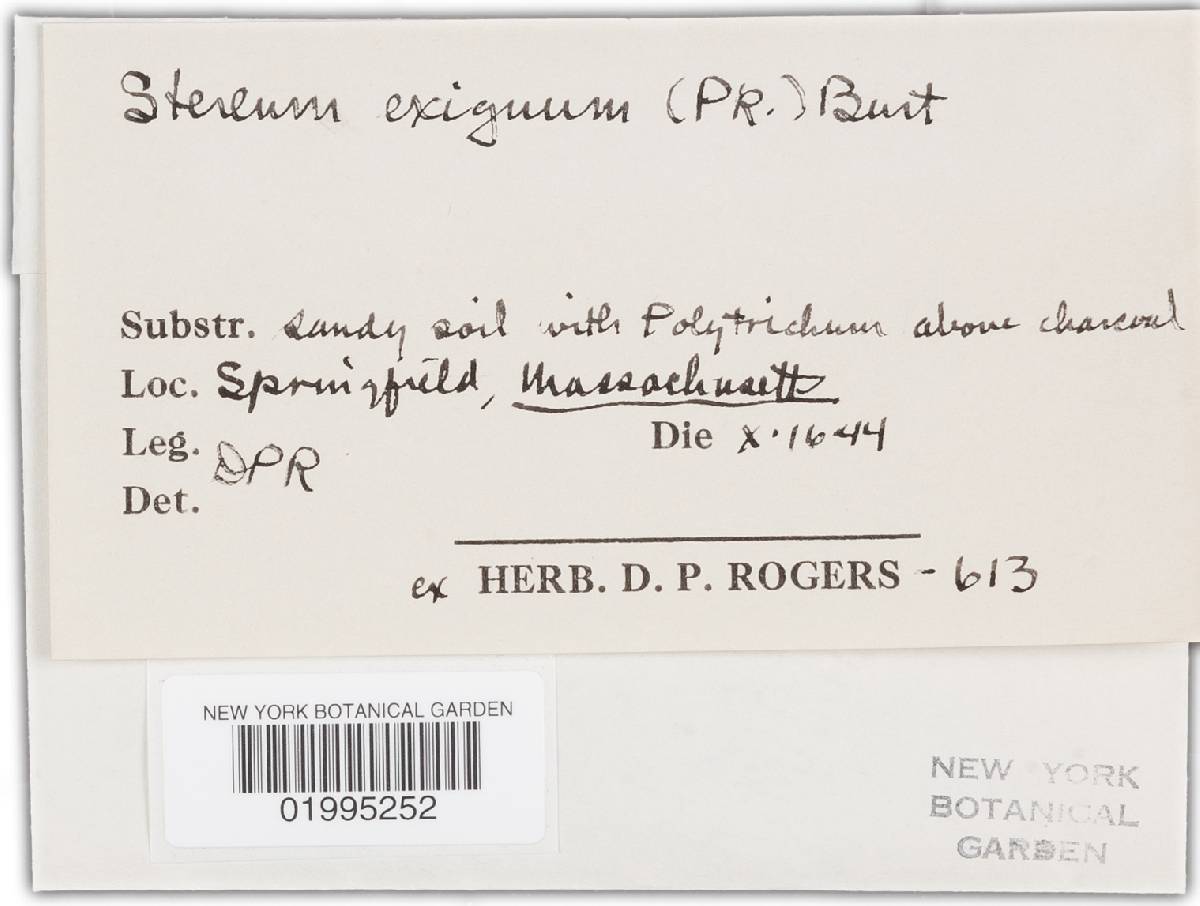 Stereum exiguum (PK.) Burt
Substr. sandy soil with Polytrichum above charcoal
Loc. Springfield, Massachusetts
Leg. DPR
Die X.16.44
Det.
ex HERB. D. P. ROGERS - 613
NEW YORK BOTANICAL GARDEN
01995252
NEW YORK
BOTANICAL
GARDEN